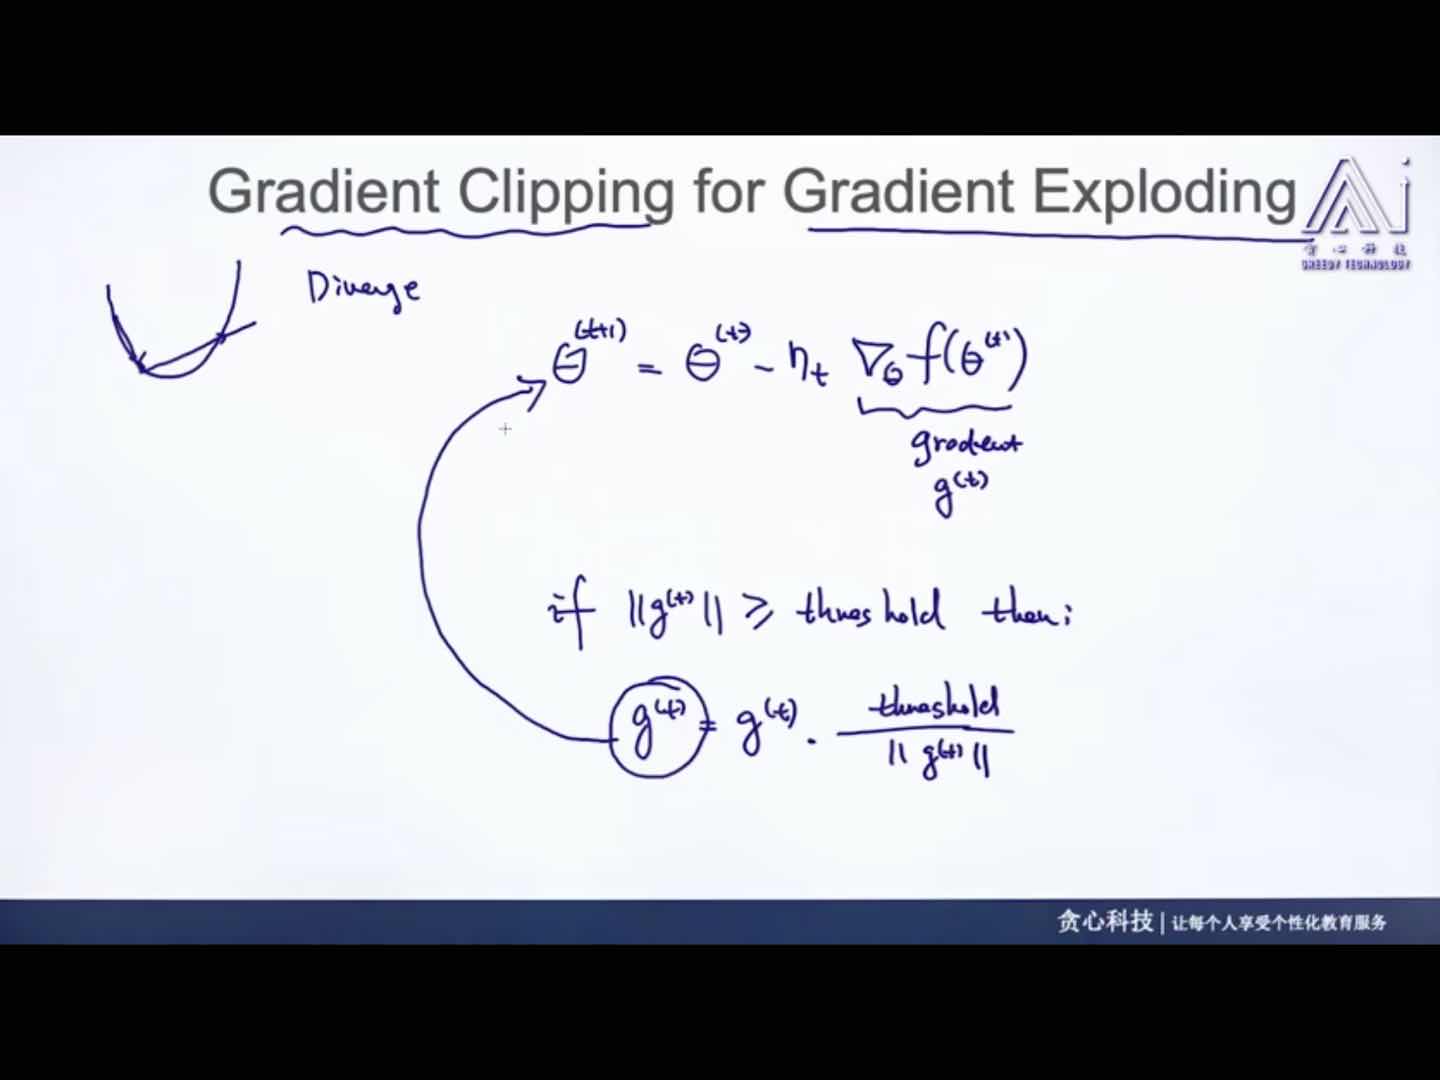 Gradient Clipping for Gradient Exploding
贪心科技
GREEDY TECHNOLOGY
Diverge
θ^(t+1) = θ^(t) - η_t ∇_θ f(θ^(t))
gradient
g^(t)
if ||g^(t)|| ≥ threshold then:
g^(t) = g^(t) · threshold / ||g^(t)||
贪心科技 | 让每个人享受个性化教育服务